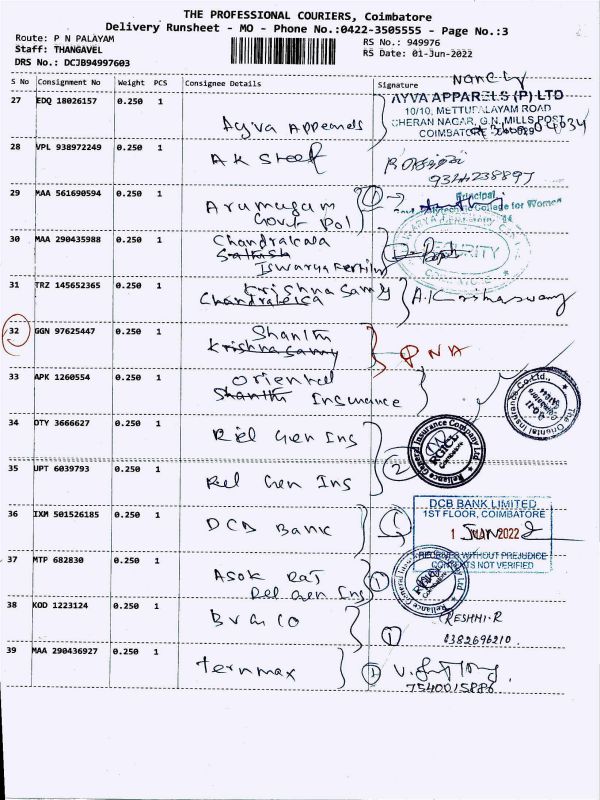 THE PROFESSIONAL COURIERS, Coimbatore
Delivery Runsheet - MO - Phone No.:0422-3505555 - Page No.:3
Route: P N PALAYAM
RS No.: 949976
Staff: THANGAVEL
RS Date: 01-Jun-2022
DRS No.: DCJB94997603
S No Consignment No Weight PCS Consignee Details Signature
27 EDQ 18026157 0.250 1
AYVA APPARELS (P) LTD
10/10, METTUPALAYAM ROAD
CHERAN NAGAR, G.N. MILLS POST
28 VPL 938972249 0.250 1 AK Steel
29 MAA 561690594 0.250 1 Arumugam
Govt Pol
Principal
College for Women
30 MAA 290435988 0.250 1 Chandralekha
Sathish
Iswarya Fertility
SECURITY
31 TRZ 145652365 0.250 1 Krishna Samy
Chandralekha
A.Krishnaswamy
32 GGN 97625447 0.250 1 Shanthi
Krishna Samy
PNA
33 APK 1260554 0.250 1 Oriental
Shanthi Insurance
The Oriental Insurance Co.Ltd.,
34 OTY 3666627 0.250 1 Rel Gen Ins
Reliance General Insurance Company Ltd
RGICL
Coimbatore
2
35 UPT 6039793 0.250 1 Rel Gen Ins
36 IXM 501526185 0.250 1 DCB Bank
DCB BANK LIMITED
1ST FLOOR, COIMBATORE
1 JUN 2022
RECEIVED WITHOUT PREJUDICE
CONTENTS NOT VERIFIED
37 MTP 682830 0.250 1 Asok Raj
Rel Gen Ins
1
38 KOD 1223124 0.250 1
1
RESHMI.R
6382696210
39 MAA 290436927 0.250 1 Termmax
1
7540015886